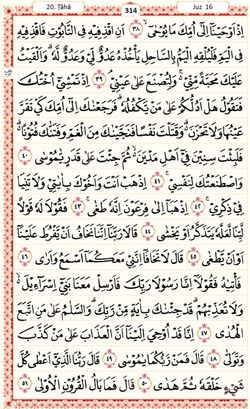 20. Ṭāhā 314 Juz 16
اِذْ اَوْحَيْنَآ اِلٰٓى اُمِّكَ مَا يُوحٰىۙ ٣٨ اَنِ اقْذِفِيهِ فِي التَّابُوتِ فَاقْذِفِيهِ
فِي الْيَمِّ فَلْيُلْقِهِ الْيَمُّ بِالسَّاحِلِ يَأْخُذْهُ عَدُوٌّ لِي وَعَدُوٌّ لَهُۜ وَاَلْقَيْتُ
عَلَيْكَ مَحَبَّةً مِنِّيۚ وَلِتُصْنَعَ عَلٰى عَيْنِيۢ ٣٩ اِذْ تَمْشِٓي اُخْتُكَ
فَتَقُولُ هَلْ اَدُلُّكُمْ عَلٰى مَنْ يَكْفُلُهُۜ فَرَجَعْنَاكَ اِلٰٓى اُمِّكَ كَيْ تَقَرَّ
عَيْنُهَا وَلَا تَحْزَنَۜ وَقَتَلْتَ نَفْسًا فَنَجَّيْنَاكَ مِنَ الْغَمِّ وَفَتَنَّاكَ فُتُونًا۠
فَلَبِثْتَ سِنِينَ فِٓي اَهْلِ مَدْيَنَ ثُمَّ جِئْتَ عَلٰى قَدَرٍ يَا مُوسٰى ٤٠
وَاصْطَنَعْتُكَ لِنَفْسِيۚ ٤١ اِذْهَبْ اَنْتَ وَاَخُوكَ بِاٰيَاتِي وَلَا تَنِيَا
فِي ذِكْرِيۚ ٤٢ اِذْهَبَآ اِلٰى فِرْعَوْنَ اِنَّهُ طَغٰىۚ ٤٣ فَقُولَا لَهُ قَوْلًا
لَيِّنًا لَعَلَّهُ يَتَذَكَّرُ اَوْ يَخْشٰى ٤٤ قَالَا رَبَّنَآ اِنَّنَا نَخَافُ اَنْ يَفْرُطَ عَلَيْنَآ
اَوْ اَنْ يَطْغٰى ٤٥ قَالَ لَا تَخَافَآ اِنَّنِي مَعَكُمَآ اَسْمَعُ وَاَرٰى ٤٦
فَأْتِيَاهُ فَقُولَآ اِنَّا رَسُولَا رَبِّكَ فَاَرْسِلْ مَعَنَا بَنِٓي اِسْرَآئِيلَ
وَلَا تُعَذِّبْهُمْۜ قَدْ جِئْنَاكَ بِاٰيَةٍ مِنْ رَبِّكَۜ وَالسَّلَامُ عَلٰى مَنِ اتَّبَعَ
الْهُدٰى ٤٧ اِنَّا قَدْ اُوحِيَ اِلَيْنَآ اَنَّ الْعَذَابَ عَلٰى مَنْ كَذَّبَ
وَتَوَلّٰى ٤٨ قَالَ فَمَنْ رَبُّكُمَا يَا مُوسٰى ٤٩ قَالَ رَبُّنَا الَّذِٓي اَعْطٰى كُلَّ
شَيْءٍ خَلْقَهُ ثُمَّ هَدٰى ٥٠ قَالَ فَمَا بَالُ الْقُرُونِ الْاُو۫لٰى ٥١